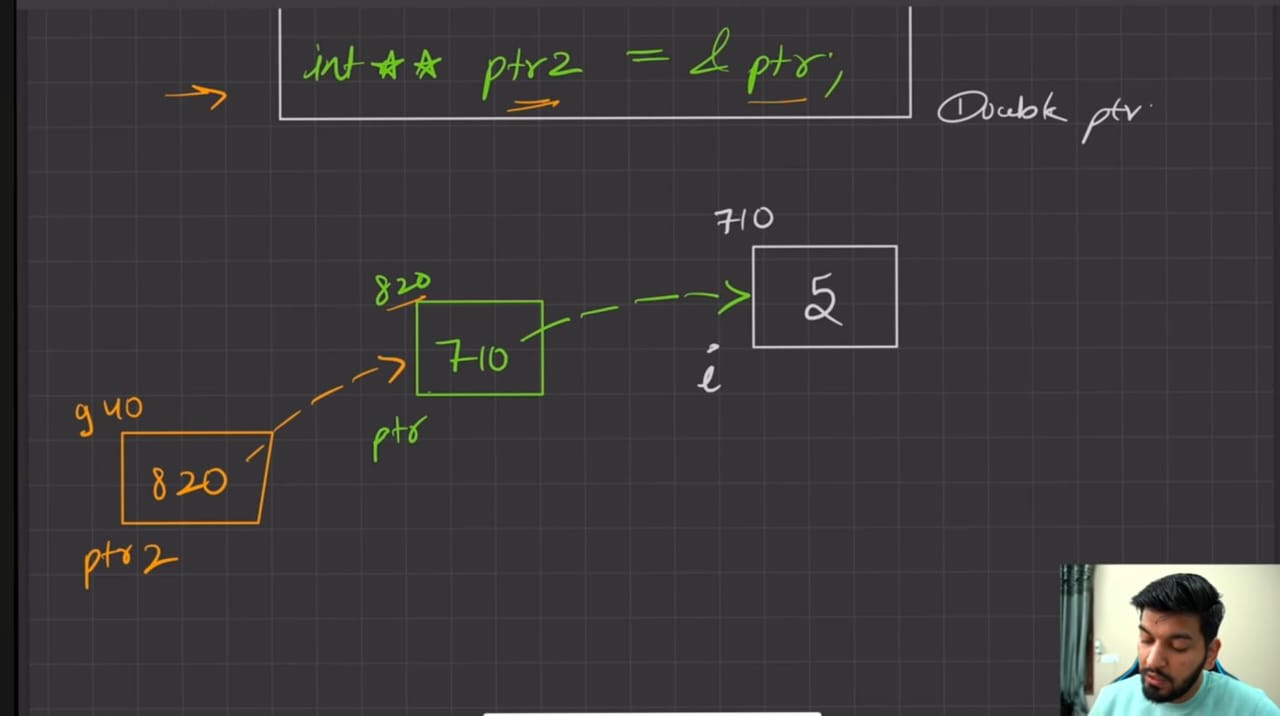 int** ptr2 = &ptr;
Double ptr
710
5
i
820
710
ptr
940
820
ptr2